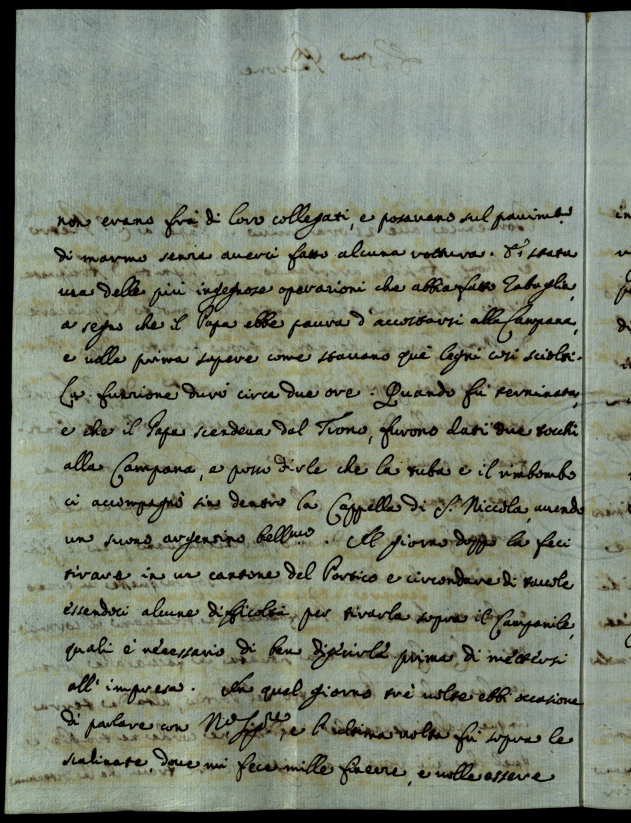 non erano frà di loro collegati, e posavano sul pavim.to
di marmo senza averci fatto alcuna rottura. È stata
una delle più ingegnose operazioni che abbia fatto Zabaglia,
a segno che il Papa ebbe paura d'accostarsi alla Campana,
e volle prima sapere come stavano què legni così sciolti.
La funzione durò circa due ore. Quando fù terminata,
e che il Papa scendeva dal Trono, furono dati due tocchi
alla Campana, e posso dirle che la tuba e il rimbombo
ci accompagnò sin dentro la Cappella di S. Niccola, avendo
un suono argentino bell.mo. Il giorno doppo la feci
tirare in un cantone del Portico e circondare di tavole
essendoci alcune difficoltà per tirarla sopra il Campanile,
quali è necessario di ben digerirle prima di mettersi
all'impresa. In quel giorno trè volte ebbi occasione
di parlare con N.ro Sig.re, e l'ultima volta fù sopra le
scalinate, dove mi fece mille finezze, e volle essere